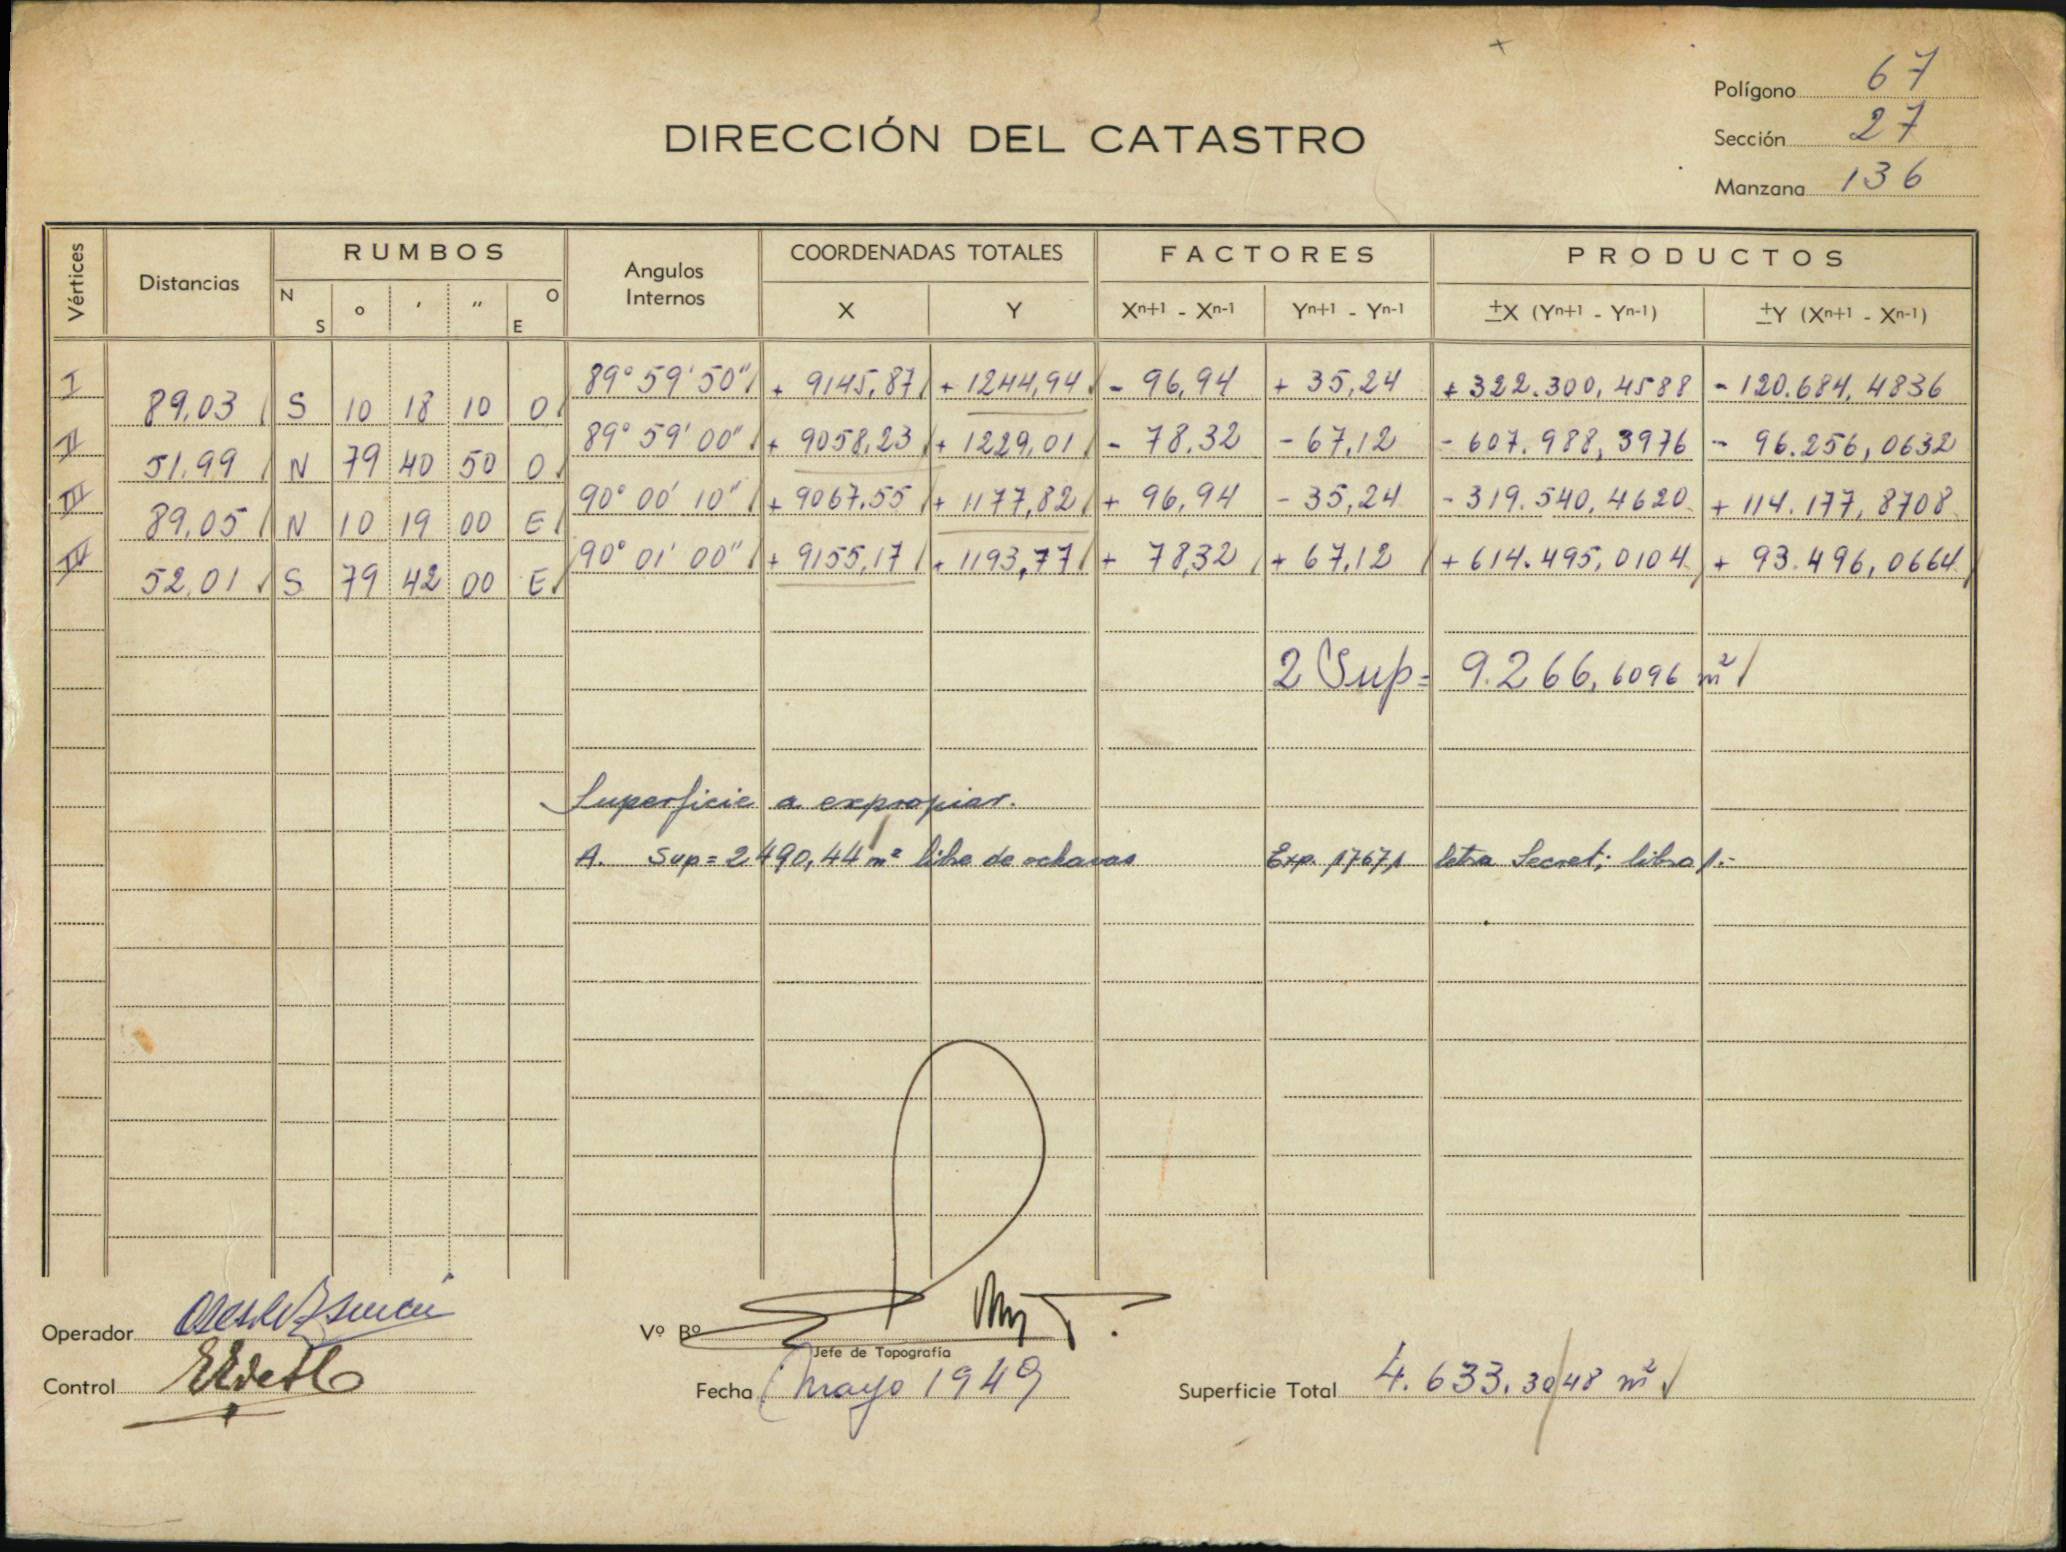 Polígono 67
DIRECCIÓN DEL CATASTRO
Sección 27
Manzana 136
Vértices Distancias RUMBOS N S o ′ ″ O E Angulos Internos COORDENADAS TOTALES X Y FACTORES Xn+1 - Xn-1 Yn+1 - Yn-1 PRODUCTOS ±X (Yn+1 - Yn-1) ±Y (Xn+1 - Xn-1)
I 89° 59' 50" + 9145,87 + 1244,94 - 96,94 + 35,24 + 322.300,4588 - 120.684,4836
89,03 S 10 18 10 O
II 89° 59' 00" + 9058,23 + 1229,01 - 78,32 - 67,12 - 607.988,3976 - 96.256,0632
51,99 N 79 40 50 O
III 90° 00' 10" + 9067,55 + 1177,82 + 96,94 - 35,24 - 319.540,4620 + 114.177,8708
89,05 N 10 19 00 E
IV 90° 01' 00" + 9155,17 + 1193,77 + 78,32 + 67,12 + 614.495,0104 + 93.496,0664
52,01 S 79 42 00 E
2 Sup = 9.266,6096 m²
Superficie a expropiar.
A. Sup = 2490,44 m² libre de ochavas Exp. 17671 letra Secret; libro 1.-
Operador
Vº Bº
Jefe de Topografía
Control
Fecha Mayo 1949
Superficie Total 4.633,3048 m²